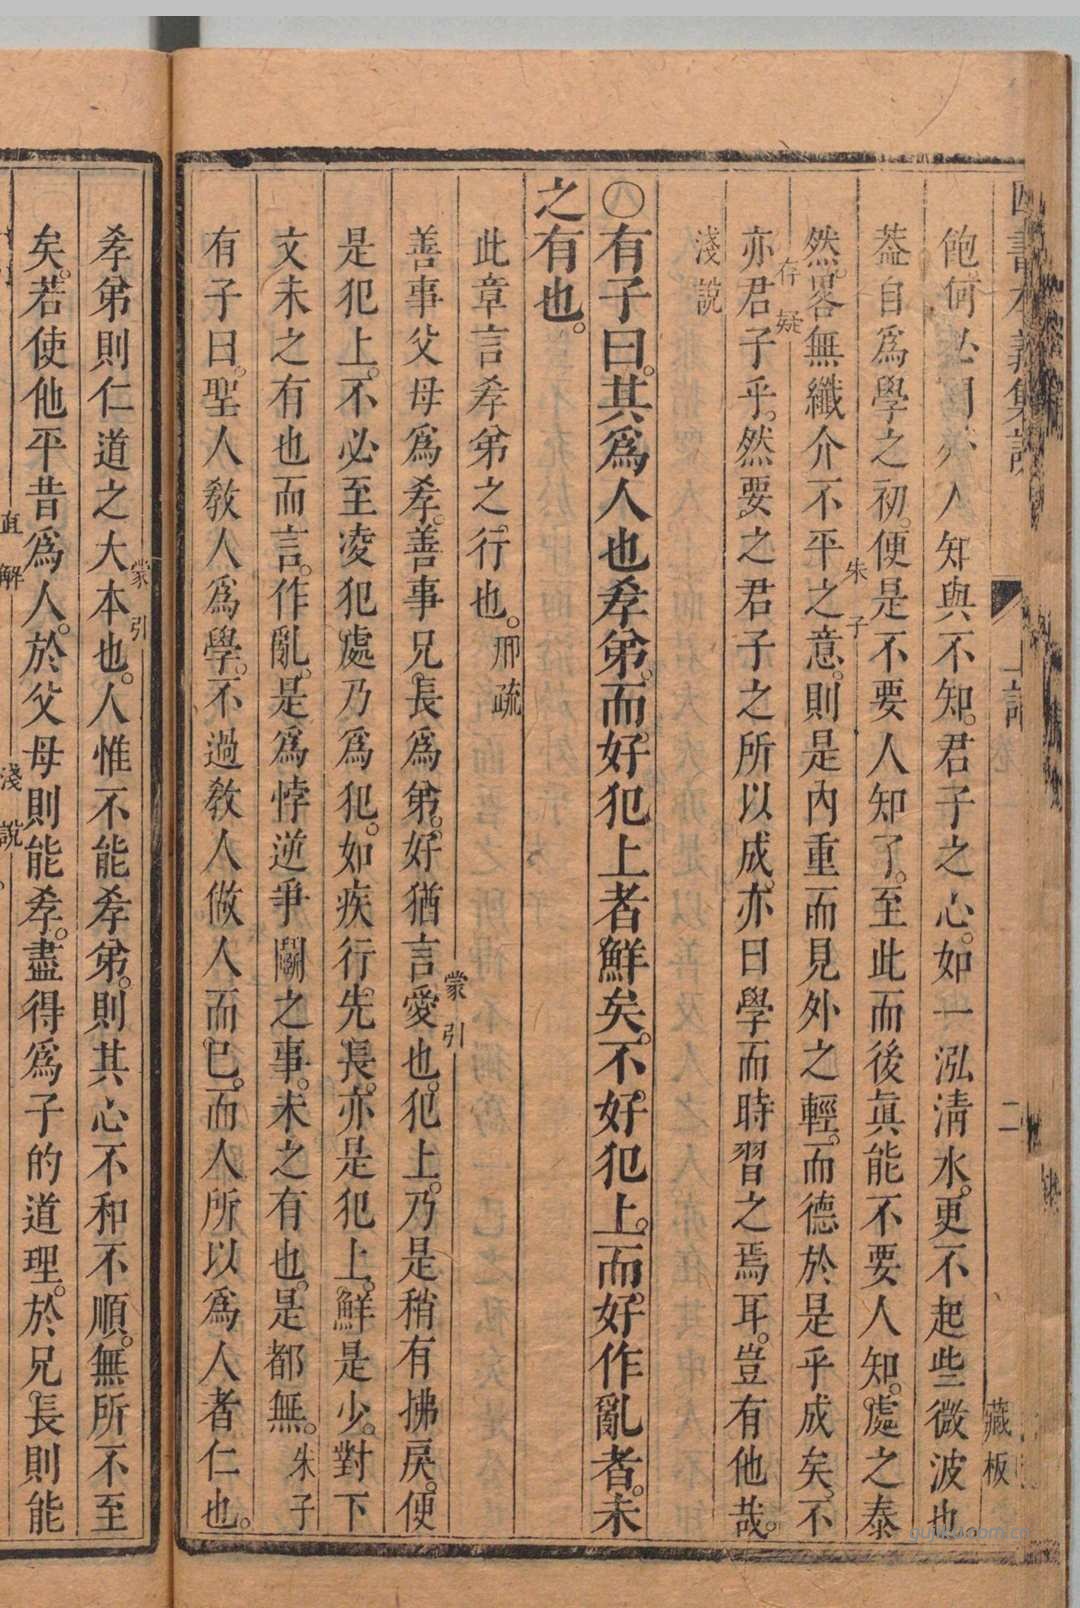 飽何必問外人知與不知。君子之心。如一泓清水。更不起些微波也
葢自爲學之初。便是不要人知了。至此而後眞能不要人知。處之泰
朱子
然。畧無纖介不平之意。則是內重而見外之輕。而德於是乎成矣。不
存疑
亦君子乎。然要之君子之所以成。亦曰學而時習之焉耳。豈有他哉。
淺說
〇有子曰。其爲人也孝弟。而好犯上者鮮矣。不好犯上。而好作亂者。未
之有也。
此章言孝弟之行也。邢疏
善事父母爲孝。善事兄長爲弟。好猶言愛也。犯上。乃是稍有拂戾。便
蒙引
是犯上。不必至凌犯處乃爲犯。如疾行先長。亦是犯上。鮮是少。對下
文未之有也而言。作亂。是爲悖逆爭鬭之事。未之有也。是都無。朱子
有子曰。聖人敎人爲學。不過敎人做人而已。而人所以爲人者仁也。
孝弟則仁道之大本也。人惟不能孝弟。則其心不和不順。無所不至
蒙引
矣。若使他平昔爲人。於父母則能孝。盡得爲子的道理。於兄長則能
直解
淺說
二
藏板